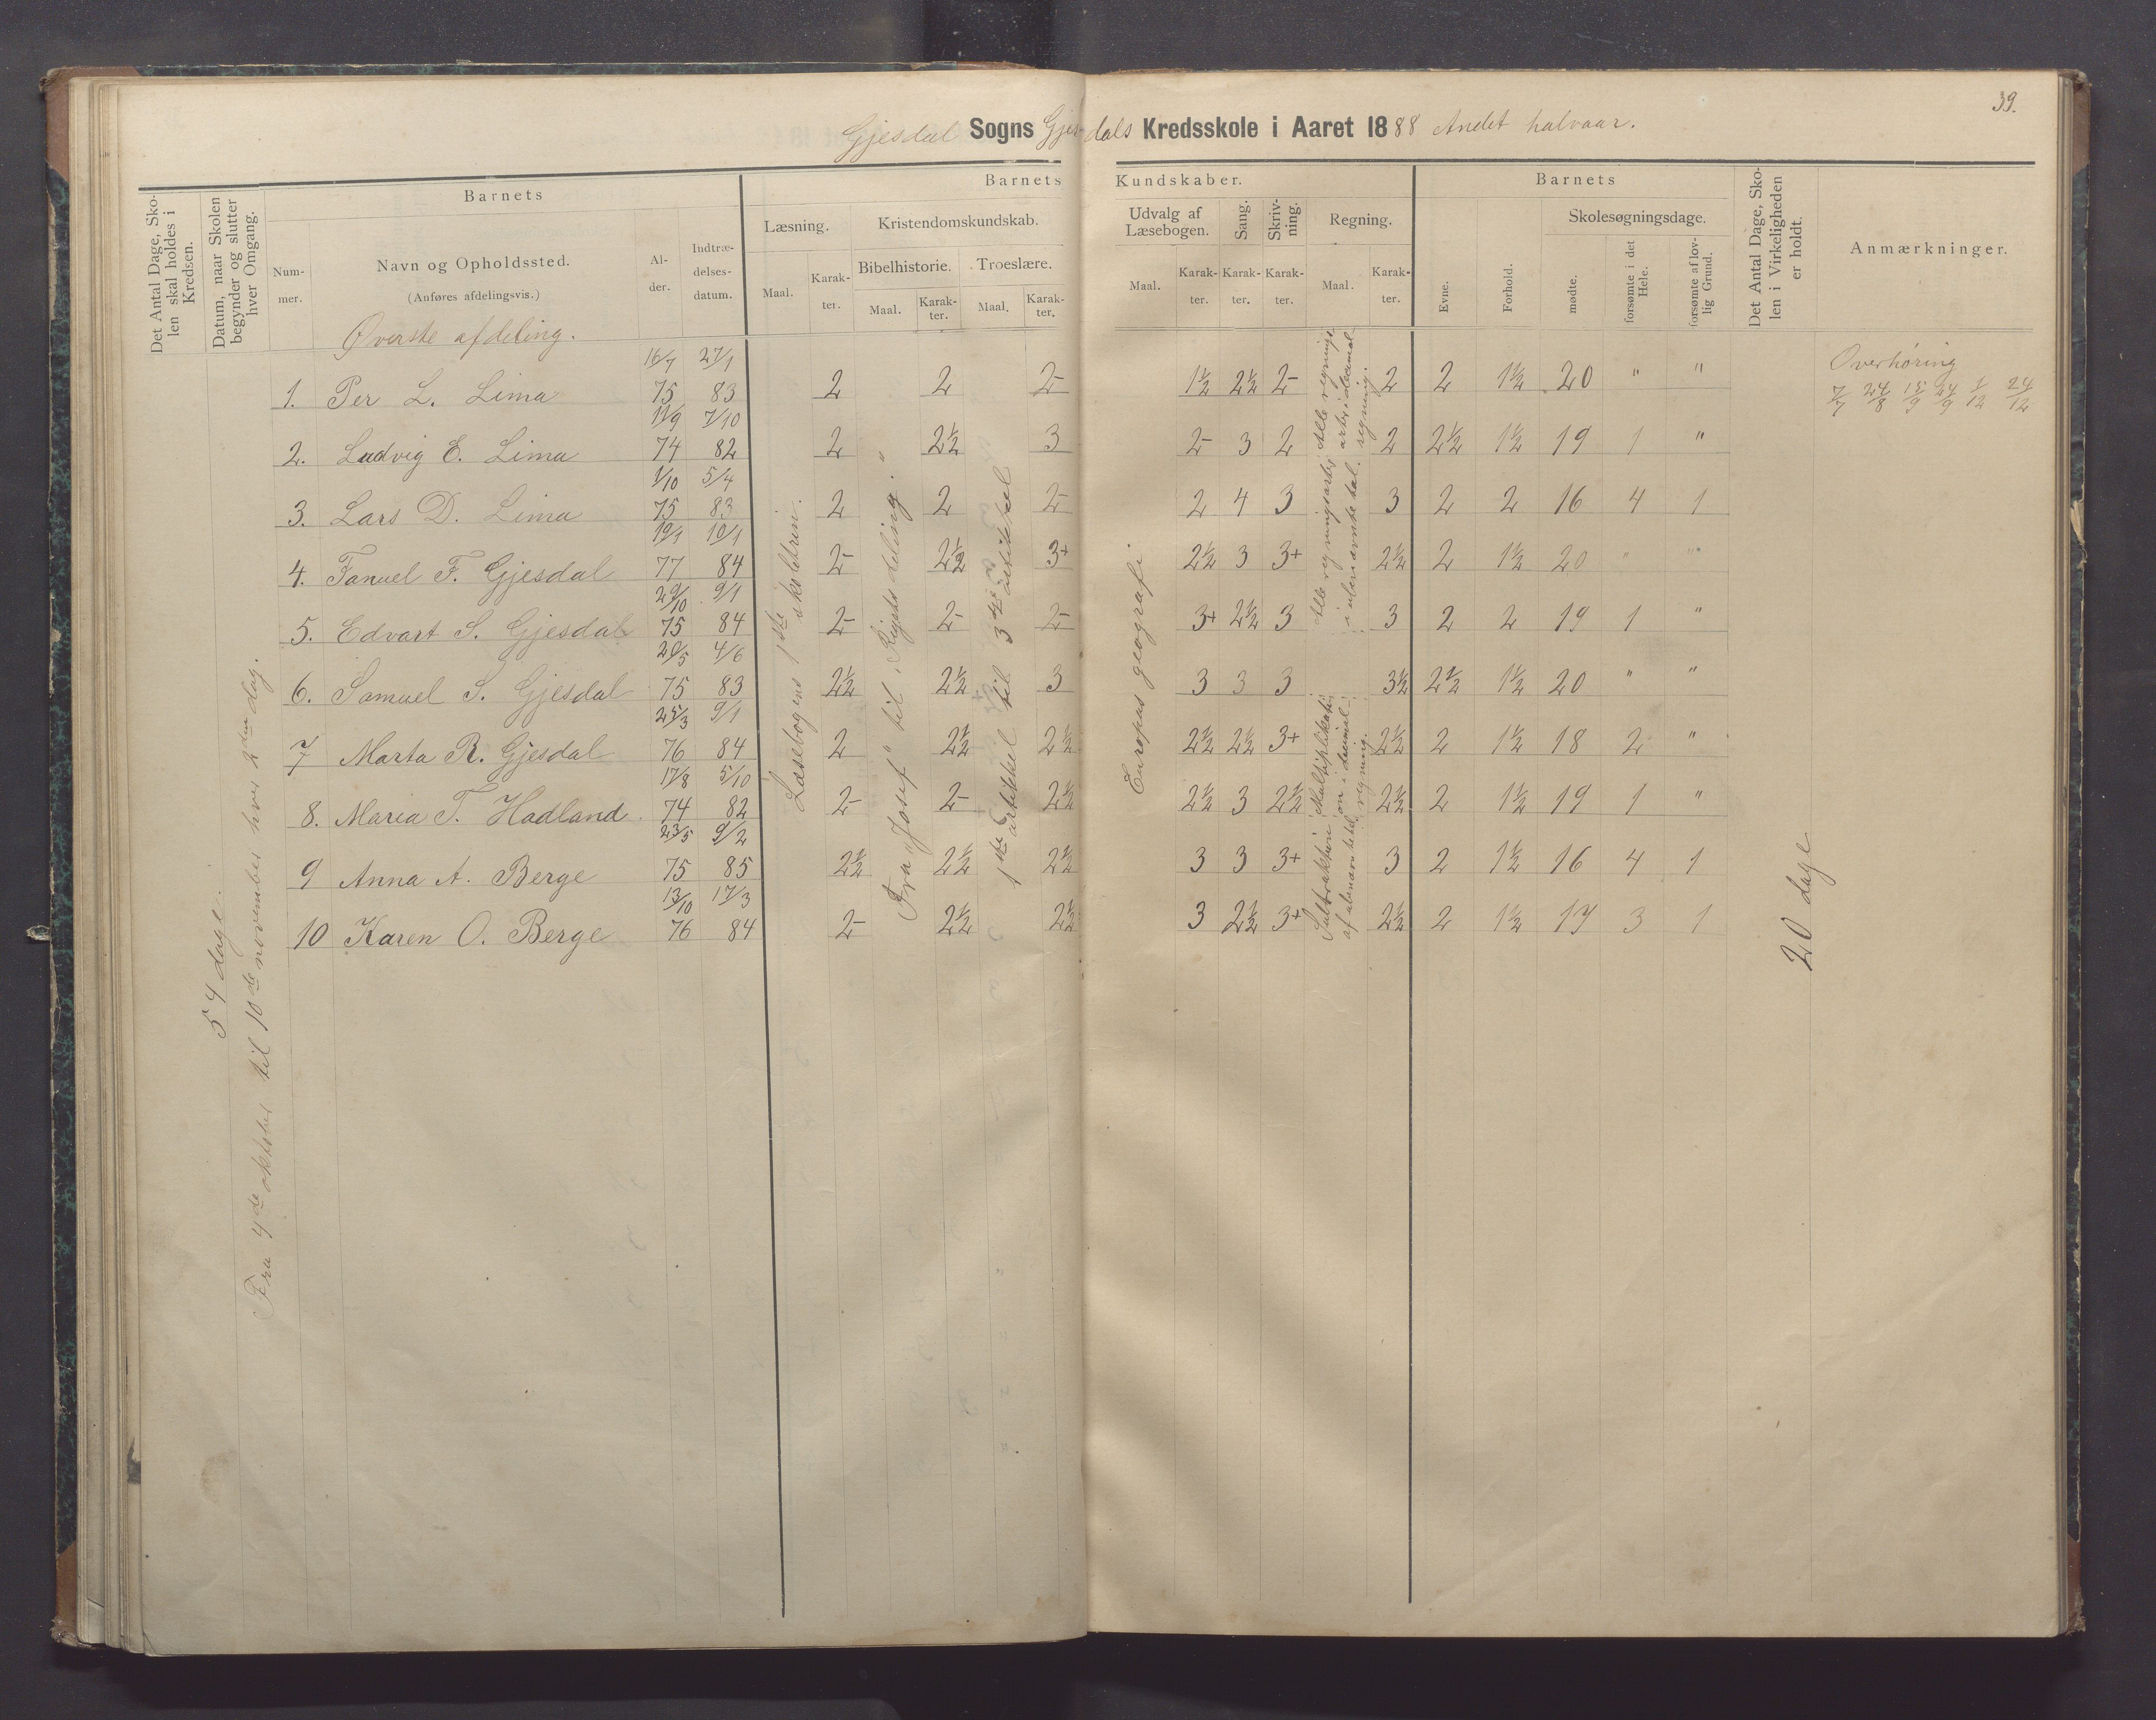 39.
Gjesdal Sogns Gjesdals Kredsskole i Aaret 1888 Andet halvaar.
Det Antal Dage, Skolen skal holdes i Kredsen.
Datum, naar Skolen begynder og slutter hver Omgang.
Barnets
Nummer.
Navn og Opholdssted.
(Anføres afdelingsvis.)
Alder.
Indtrædelsesdatum.
Barnets Kundskaber.
Læsning.
Maal.
Karakter.
Kristendomskundskab.
Bibelhistorie.
Maal.
Karakter.
Troeslære.
Maal.
Karakter.
Udvalg af Læsebogen.
Maal.
Karakter.
Sang.
Karakter.
Skrivning.
Karakter.
Regning.
Maal.
Karakter.
Barnets
Evne.
Forhold.
Skolesøgningsdage.
mødte.
forsømte i det Hele.
forsømte af lovlig Grund.
Det Antal Dage, Skolen i Virkeligheden er holdt.
Anmærkninger.
Øverste afdeling.
1. Per L. Lima 16/7 75 27/1 83 2 2 2- 1½ 2½ 2- 2 2 1½ 20 " "
2. Ludvig E. Lima 11/9 74 7/10 82 2 2½ 3 2- 3 2 2 2½ 1½ 19 1 "
3. Lars D. Lima 1/10 75 5/4 83 2 2 2- 2 4 3 3 2 2 16 4 1
4. Fanuel F. Gjesdal 19/1 77 10/1 84 2- 2½ 3+ 2½ 3 3+ 2½ 2 1½ 20 " "
5. Edvart S. Gjesdal 29/10 75 9/1 84 2- 2- 2- 3+ 2½ 3 3 2 2 19 1 "
6. Samuel S. Gjesdal 75 4/6 83 2½ 2½ 3 3 3 3 3½ 2½ 1½ 20 " "
7 Marta R. Gjesdal 25/3 76 9/1 84 2 2½ 2½ 2½ 2½ 3+ 2½ 2 1½ 18 2 "
8. Maria T. Hadland. 17/8 74 5/10 82 2- 2- 2½ 2½ 3 2½ 2½ 2 1½ 19 1 "
9 Anna A. Berge 23/5 75 9/2 85 2½ 2½ 2½ 3 3 3+ 3 2 1½ 16 4 1
10 Karen O. Berge 13/10 76 17/3 84 2- 2½ 2½ 3 2½ 3+ 2½ 2 1½ 17 3 1
54 dage.
Fra 4de oktober til 10de november hver 2den dag.
Læsebogens 1ste skoletrin.
Fra "Josef" til "Rigets deling."
1ste artikkel til 3die artikkel
Europas geografi
Alle regningsarter i ubenævnte tal. Alle regningsarter i decimalregning.
Subtraktion i Multiplikation i decimalregning.
20 dage
Overhøring
7/7 24/8 15/9 24/9 1/12 24/12